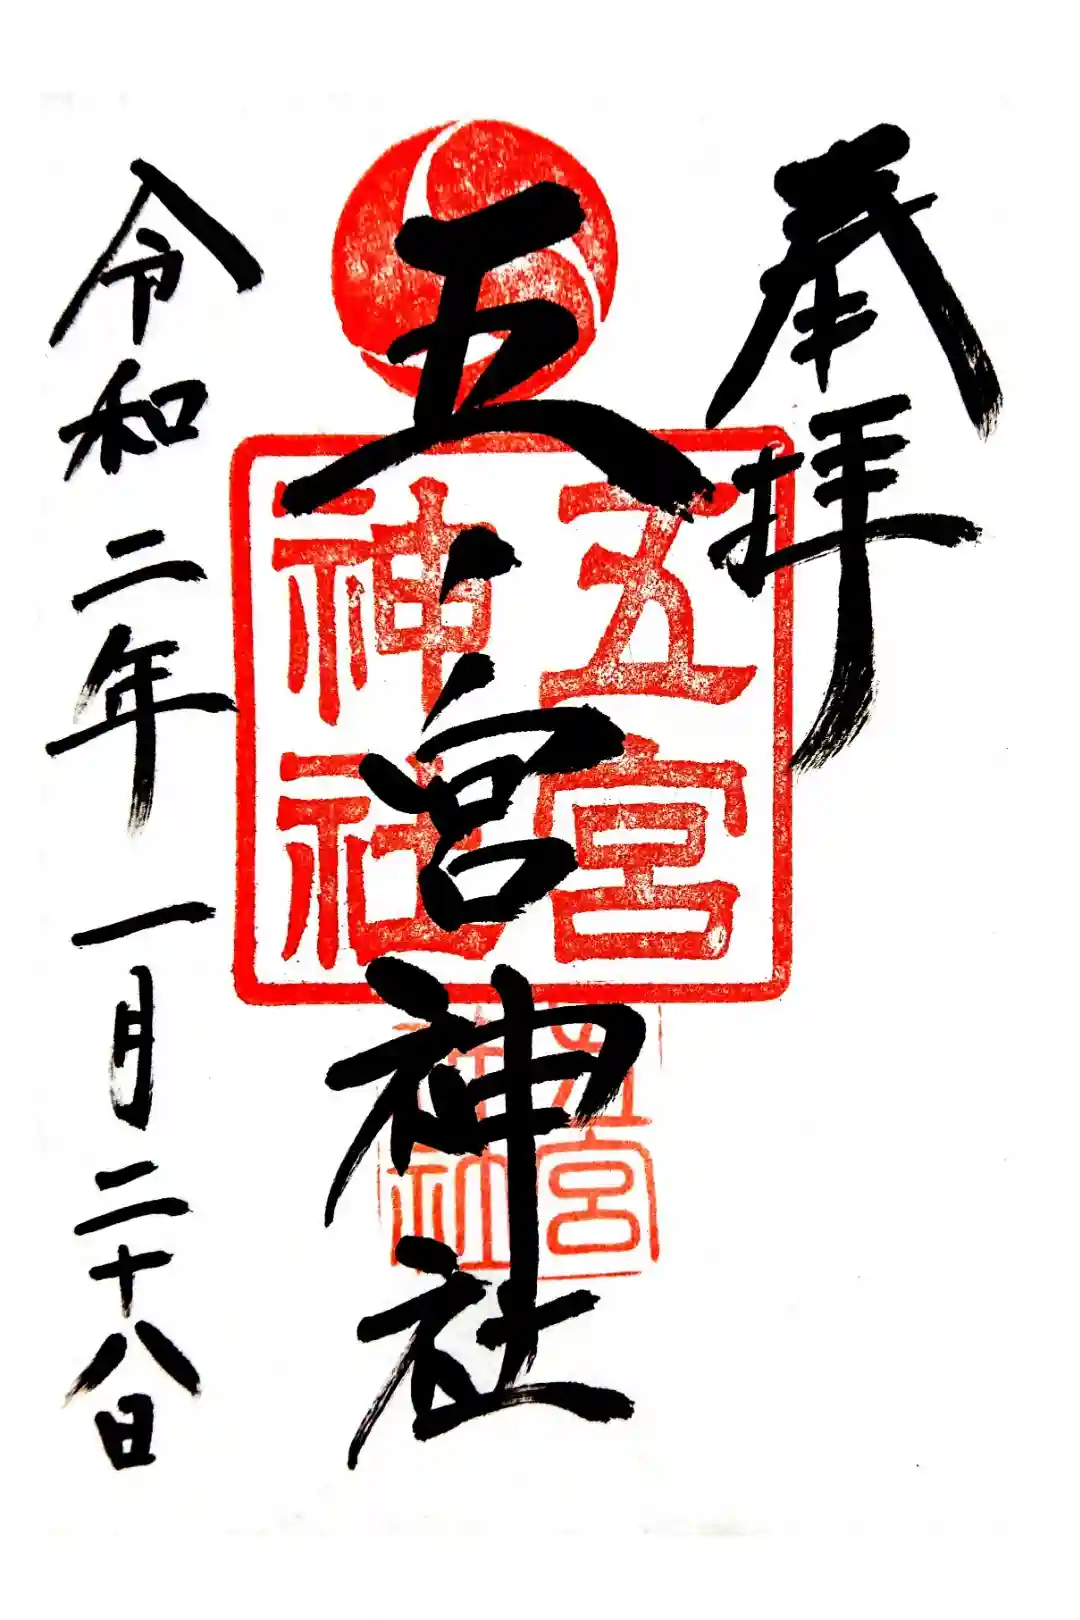 奉拝
五ノ宮神社
五宮
神社
五宮
神社
令和二年一月二十八日